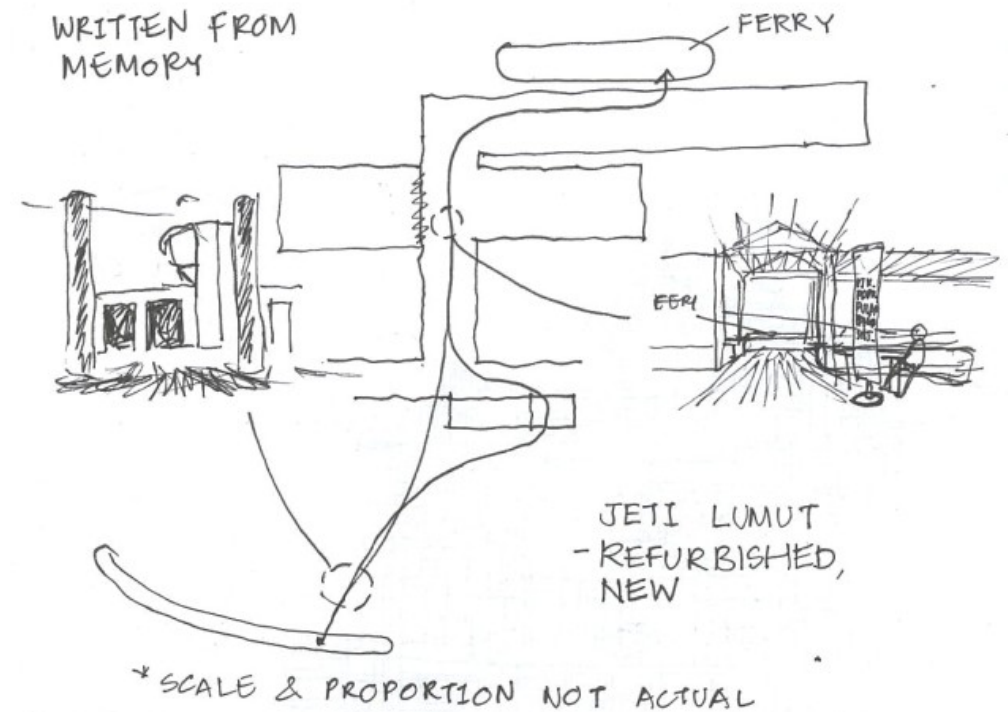 WRITTEN FROM
MEMORY
FERRY
JETI LUMUT
- REFURBISHED,
NEW
* SCALE & PROPORTION NOT ACTUAL